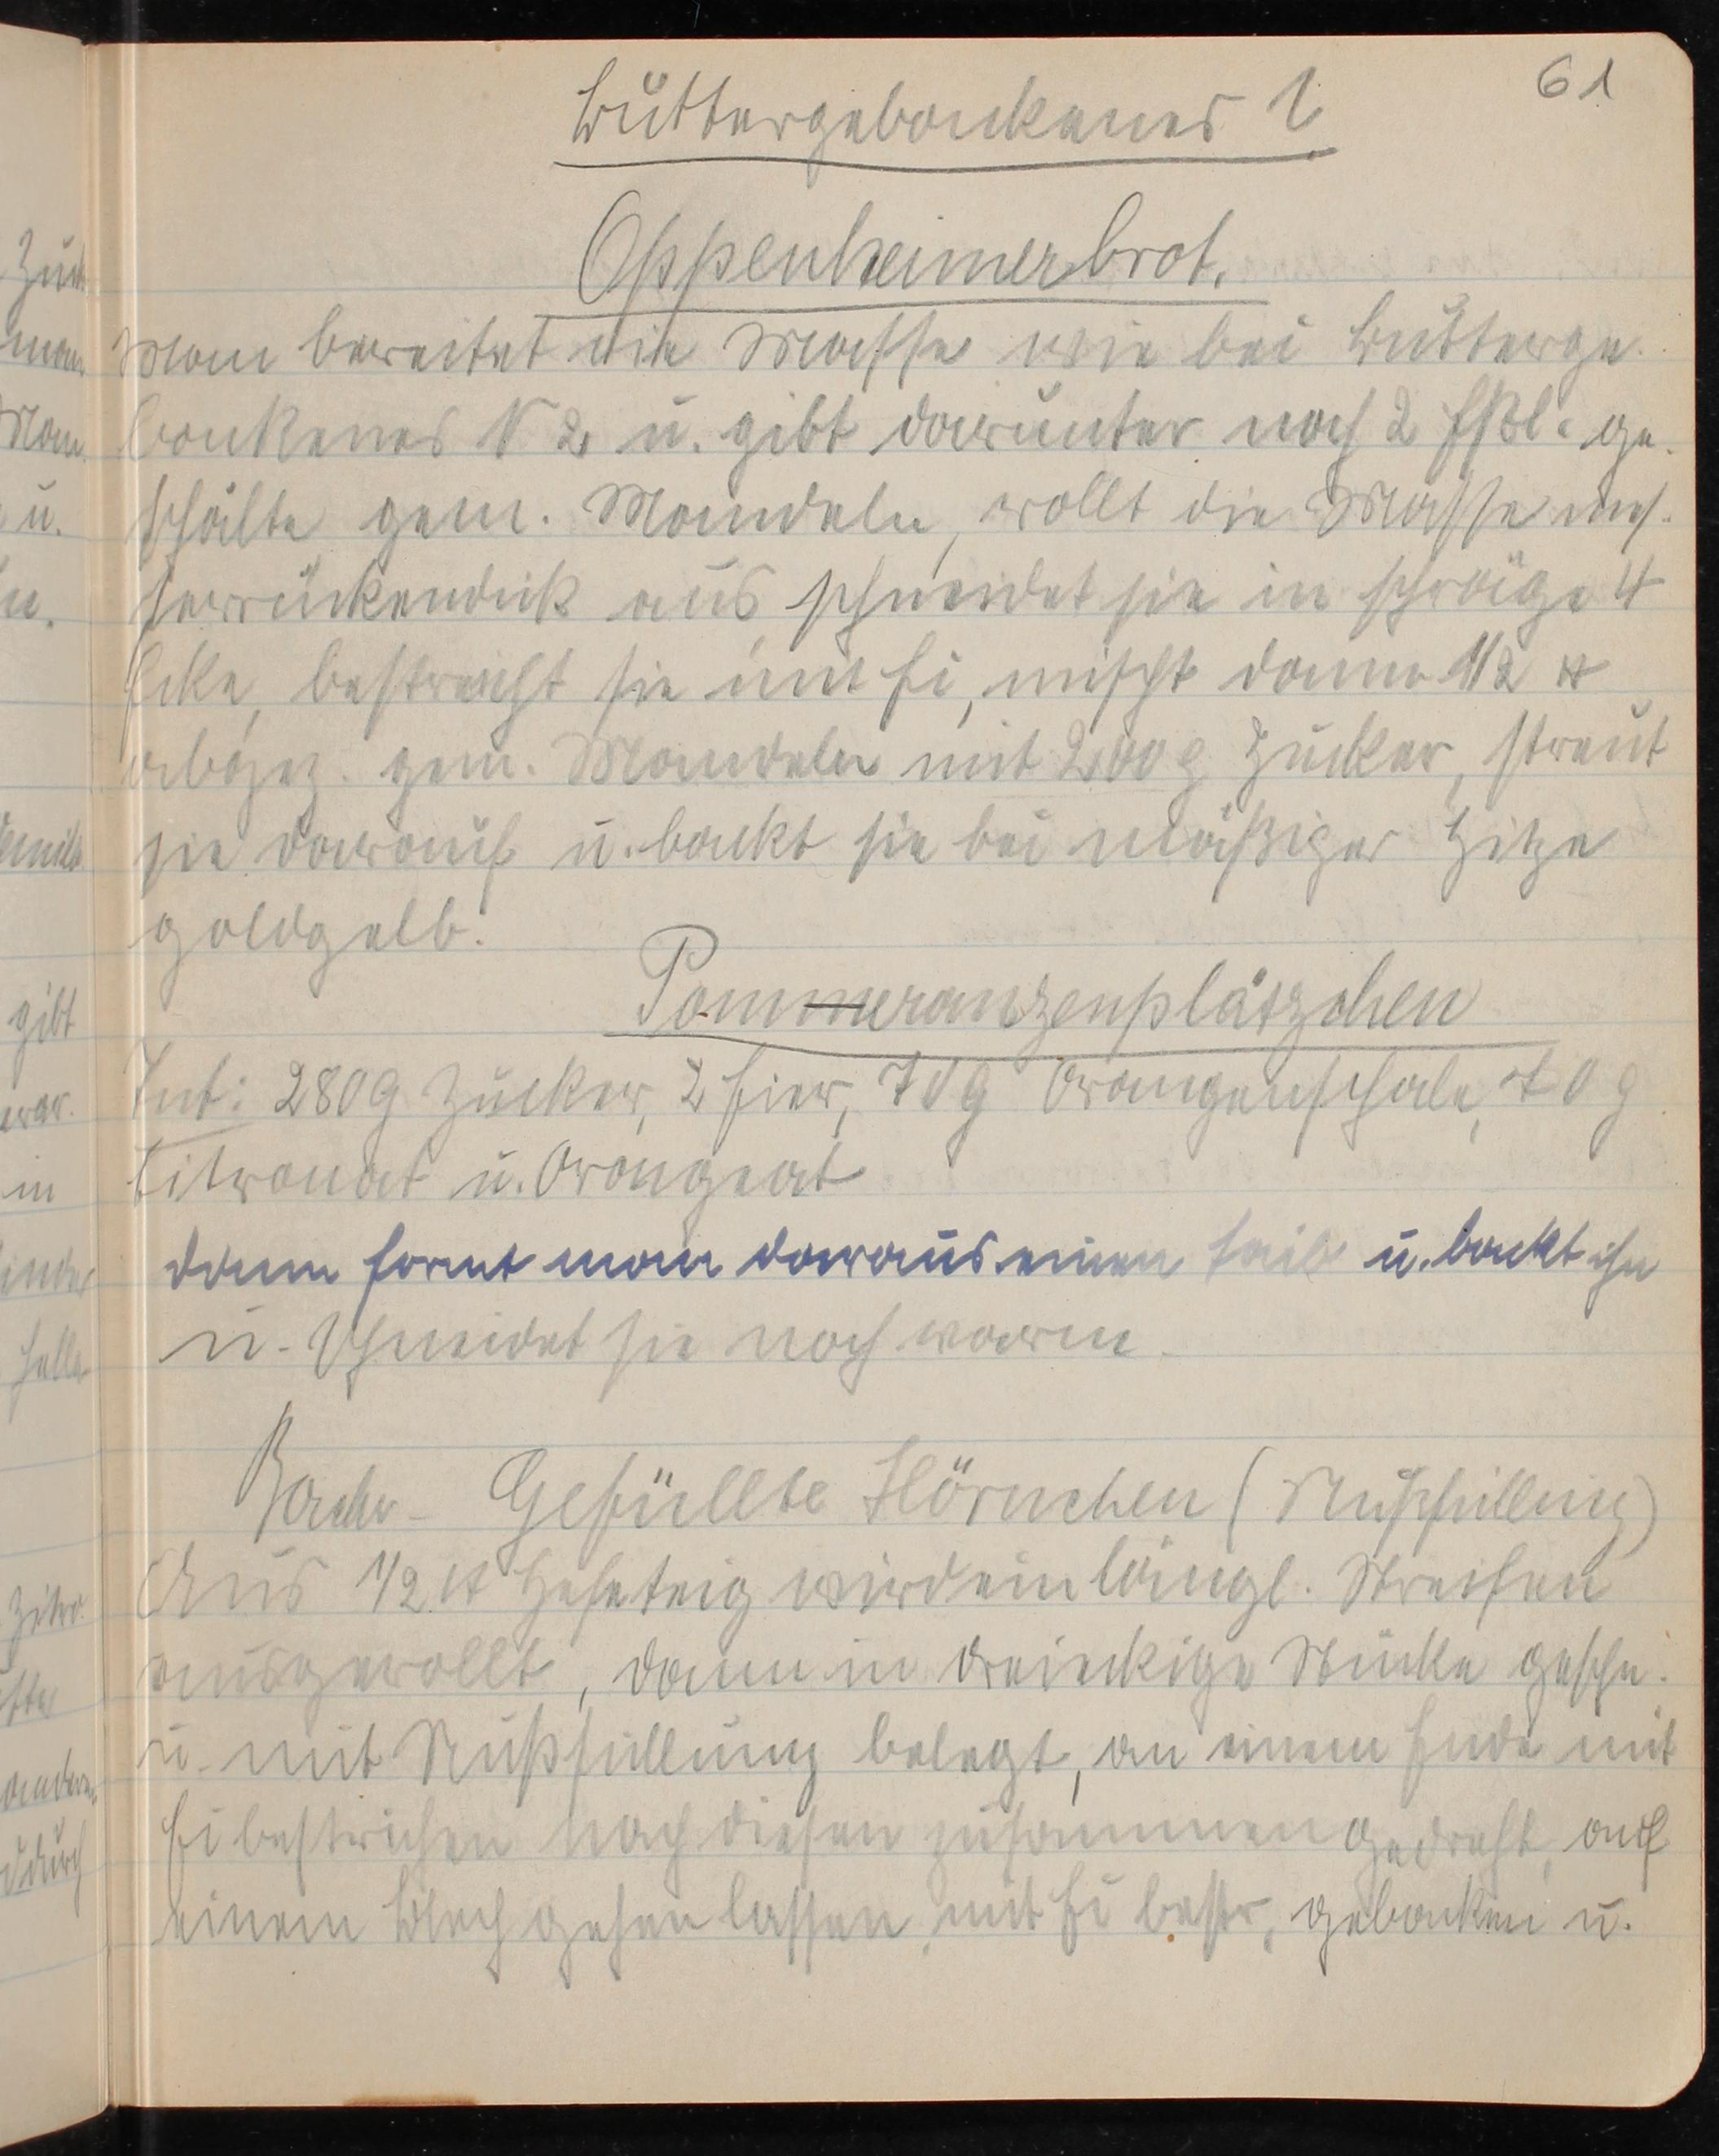 61
Buttergebackenes 2
Oppenheimerbrot.
Man bereitet die Masse wie bei Butterge-
backenes N 2 u. gibt darunter noch 2 Eßl. ge-
schälte gem. Mandeln, rollt die Masse mes-
serrückendick aus schneidet sie in schräge 4
Ecke, bestreicht sie mit Ei, mischt dann 1/2 ℔
abgez. gem. Mandeln mit 200 g Zucker, streut
sie darauf u. backt sie bei mäßiger Hitze
goldgelb.
Pommeranzenplätzchen
Zut: 280 g Zucker, 2 Eier, 70 g Orangenschale, 70 g
Citronat u. Orangeat
dann formt man daraus einen Laib u. backt ihn
u. schneidet sie noch warm.
Gefüllte Hörnchen (Nußfüllung)
Aus 1/2 ℔ Hefeteig wird ein längl. Streifen
ausgerollt, dann in dreieckige Stücke geschn.
u. mit Nußfüllung belegt, an einem Ende mit
Ei bestrichen nach diesen zusammengedreht, auf
einem Blech gehen lassen, mit Ei bestr, gebacken u.